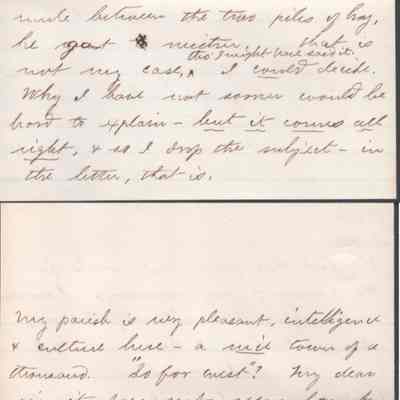 mule between the two piles of hay,
he got neither. that is
tho' I might have said it.
not my case, I could decide.
Why I have not sooner would be
hard to explain – but it comes all
right, & so I drop the subject – in
the letter, that is.
My parish is very pleasant, intelligence
& culture here – a nice town of a
thousand. "So far west"? My dear